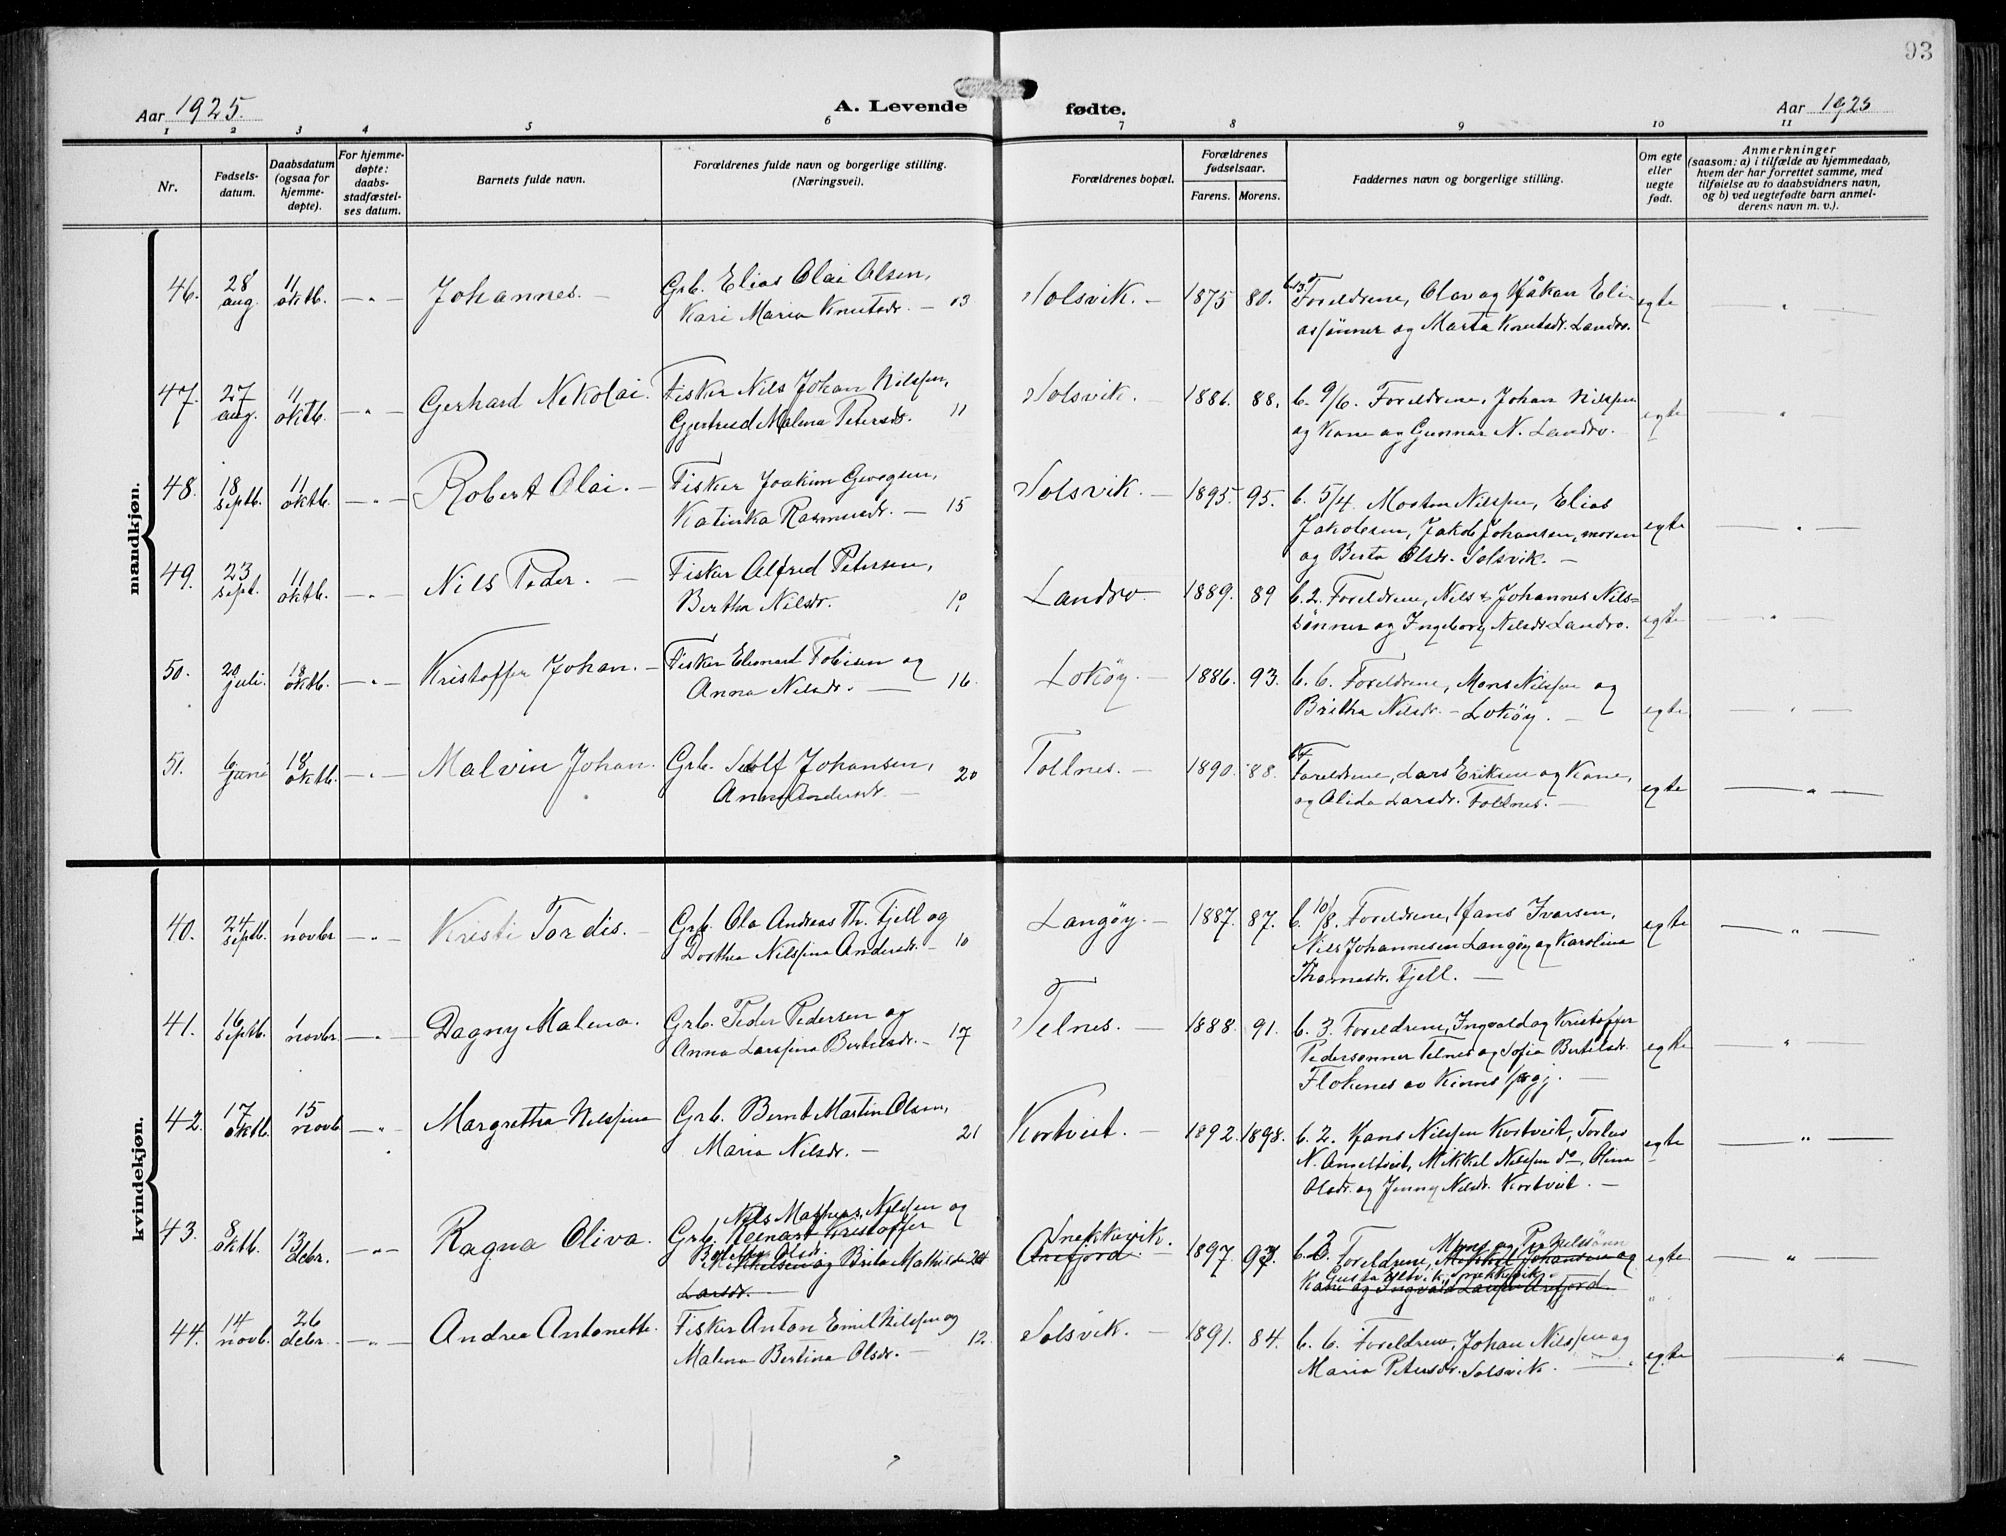 93
Aar 1925.
A. Levende fødte.
Aar 1925
1 2 3 4 5 6 7 8 9 10 11
Nr.
Fødsels-
datum.
Daabsdatum
(ogsaa for
hjemme-
døpte).
For hjemme-
døpte:
daabs-
stadfæstel-
ses datum.
Barnets fulde navn.
Forældrenes fulde navn og borgerlige stilling.
(Næringsvei).
Forældrenes bopæl.
Forældrenes
fødselsaar.
Farens. Morens.
Faddernes navn og borgerlige stilling.
Om egte
eller
uegte
født.
Anmerkninger
(saasom: a) i tilfælde av hjemmedaab,
hvem der har forrettet samme, med
tilføielse av to daabsvidners navn,
og b) ved uegtefødte barn anmel-
derens navn m. v.).
mandkjøn.
46. 28 aug. 11 oktb. — " — Johannes. — Grb. Elias Olai Olsen, Solsvik. — 1875 80. Foreldrene, Olav og Håkon Eli- egte "
Kari Maria Knutsdr. — 13 assønner og Marta Knutsdr. Landro.
47. 27 aug. 11 oktb. — " — Gerhard Nikolai. Fisker Nils Johan Nilssen, Solsvik. — 1886. 88. b. 9/6. Foreldrene, Johan Nilssen egte "
Gjertrud Malena Petersdr. 11 og Kone og Gunnar N. Landro. —
48. 18 septb. 11 oktb. — " — Robert Olai. — Fisker Joakim Georgsen, Solsvik. — 1895. 95. b. 5/4. Morten Nilssen, Elias
Katinka Rasmusdr. — 15 Jakobsen, Jakob Johansen, moren egte — " —
og Berta Olsdr. Solsvik. —
49. 23 sept. 11 oktb. — " — Nils Peder. — Fisker Alfred Petersen, Landro 1889. 89 b. 2. Foreldrene, Nils & Johannes Nils=
Bertha Nilsdr. 19 sønner og Ingeborg Nilsdr. Landro. egte — " —
50. 20 juli. 18 oktb. — " — Kristoffer Johan. — Fisker Elenard Tobisen og Lokøy. — 1886. 93. b. 6. Foreldrene, Mons Nilssen og
Anna Nilsdr. — 16. Britha Nilsdr. — Lokøy. — egte — " —
51. 6 juni 18 oktb. — " — Malvin Johan. Grb. Johansen, Tollnes. — 1890. 88. Foreldrene, Lars Eriksen og Kone,
Anna Andersdr. — 20 og Alida Larsdr. Tollnes. — egte — " —
kvindekjøn.
40. 24 septb. 1 novbr — " — Kristi Tordis. — Grb. Ola Andreas Th. Fjell og Langøy. — 1887. 87. b. 10/8. Foreldrene, Hans Ivarsen, egte — " —
Dorthea Nilssina Andersdr. — 10 Nils Johannesen Langøy og Karolina
Thomasdr. Fjell. —
41. 16 septb. 1 novbr. — " — Dagny Malena. Grb. Peder Pedersen og Telnes. — 1888. 91. b. 3. Foreldrene, Ingvald og Kristoffer
Anna Larssina Bertelsdr. — 17 Pedersønner Telnes og Sofia Bertelsdr. egte — " —
Flokenes av Kinns —
42. 17 oktb. 15 novb. — " — Margretha Nilssina Grb. Bernt Martin Olsen, Kortveit. — 1892. 1898. b. 2. Hans Nilssen Kortveit, Torleis
Maria Nilsdr. — 21 N. Angeltveit, Mikkel Nilssen do, Olina egte — " —
Olsdr. og Jenny Nilsdr. Kortveit. —
43. 8 oktb. 13 debr. — " — Ragna Oliva. Grb. Nils Mathias Nilssen og
Kristoffer
Mikkelsen og Brita Mathilda 24
Larsdr. —
Snekkevik. —
Arefjord. 1897. 97. b. 3. Foreldrene, Mons og Per Nilssønn
Mikkel Johansen og
Kone og Ingvald Larsen Arefjord egte — " —
44. 14 novb. 26 debr. — " — Andrea Antonette. Fisker Anton Emil Nilssen og Solsvik. — 1891. 84. b. 6. Foreldrene, Johan Nilssen og
Malena Bertina Olsdr. — 12. Maria Petersdr. Solsvik. — egte — " —